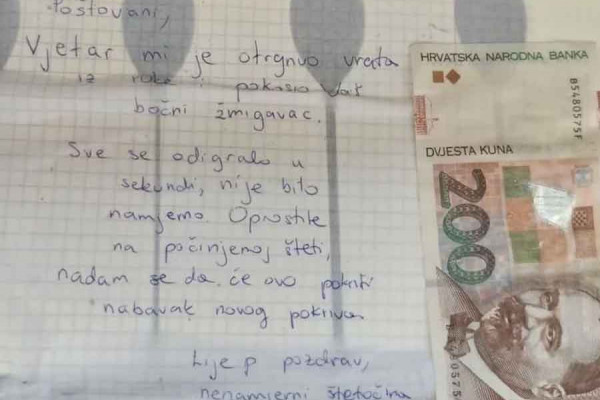 Poštovani,
Vjetar mi je otrgnuo vrata
iz ruke i pokosio vaš
bočni žmigavac.
Sve se odigralo u
sekundi, nije bilo
namjerno. Oprostite
na počinjenoj šteti,
nadam se da će ovo pokriti
nabavak novog pokriva
Lijep pozdrav,
nenamjerni štetočina
HRVATSKA NARODNA BANKA
B5480575F
DVJESTA KUNA
200